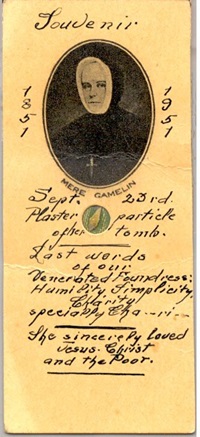 Souvenir
1851 1951
MERE GAMELIN
Sept. 23rd.
Plaster particle
of her tomb.
Last words
of our
Venerated Foundress:
Humility, Simplicity,
Charity
specially Cha--ri--
She sincerely loved
Jesus-Christ
and the Poor.